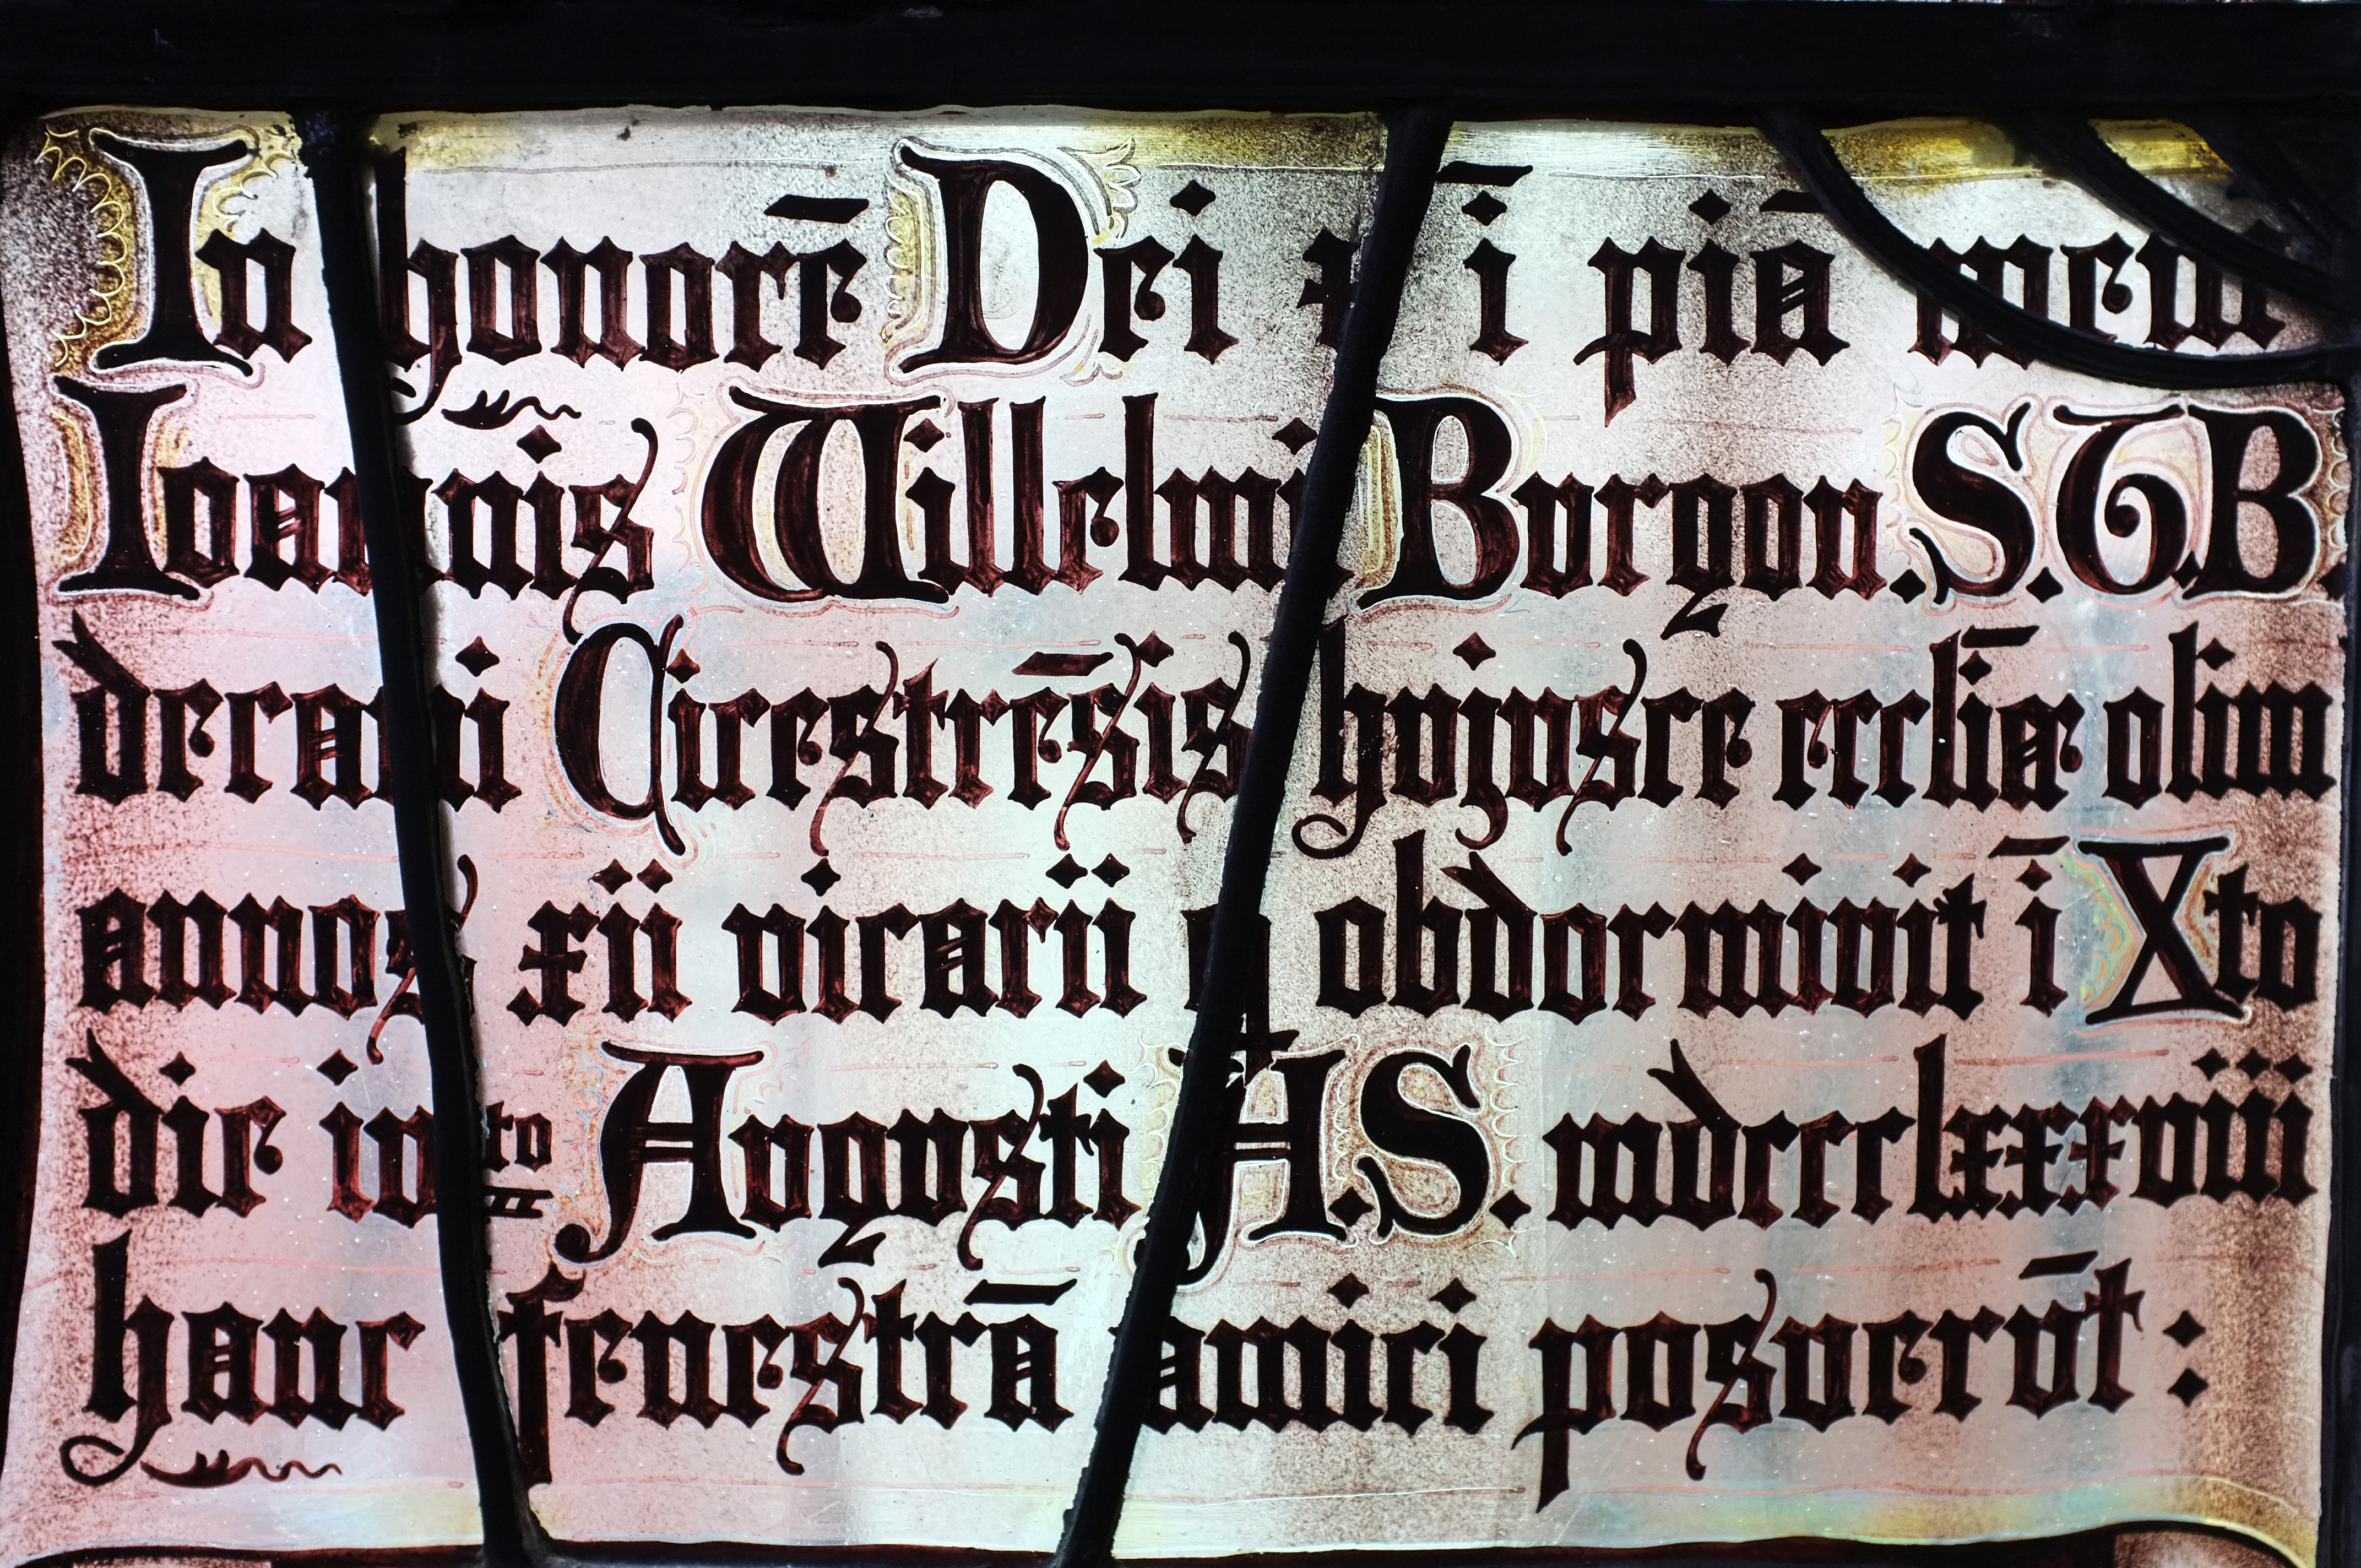 In honorē Dei & ī piā mem
Ioannis Willelmi Bvrgon. S.T.B.
decani Cicestrēsis hvjvsce eccl̄iæ olim
annos xii vicarii q obdormivit ī Xto
die ivto Avgvsti A.S. mdccclxxxviii
hanc fenestrā amici posverv̄t :